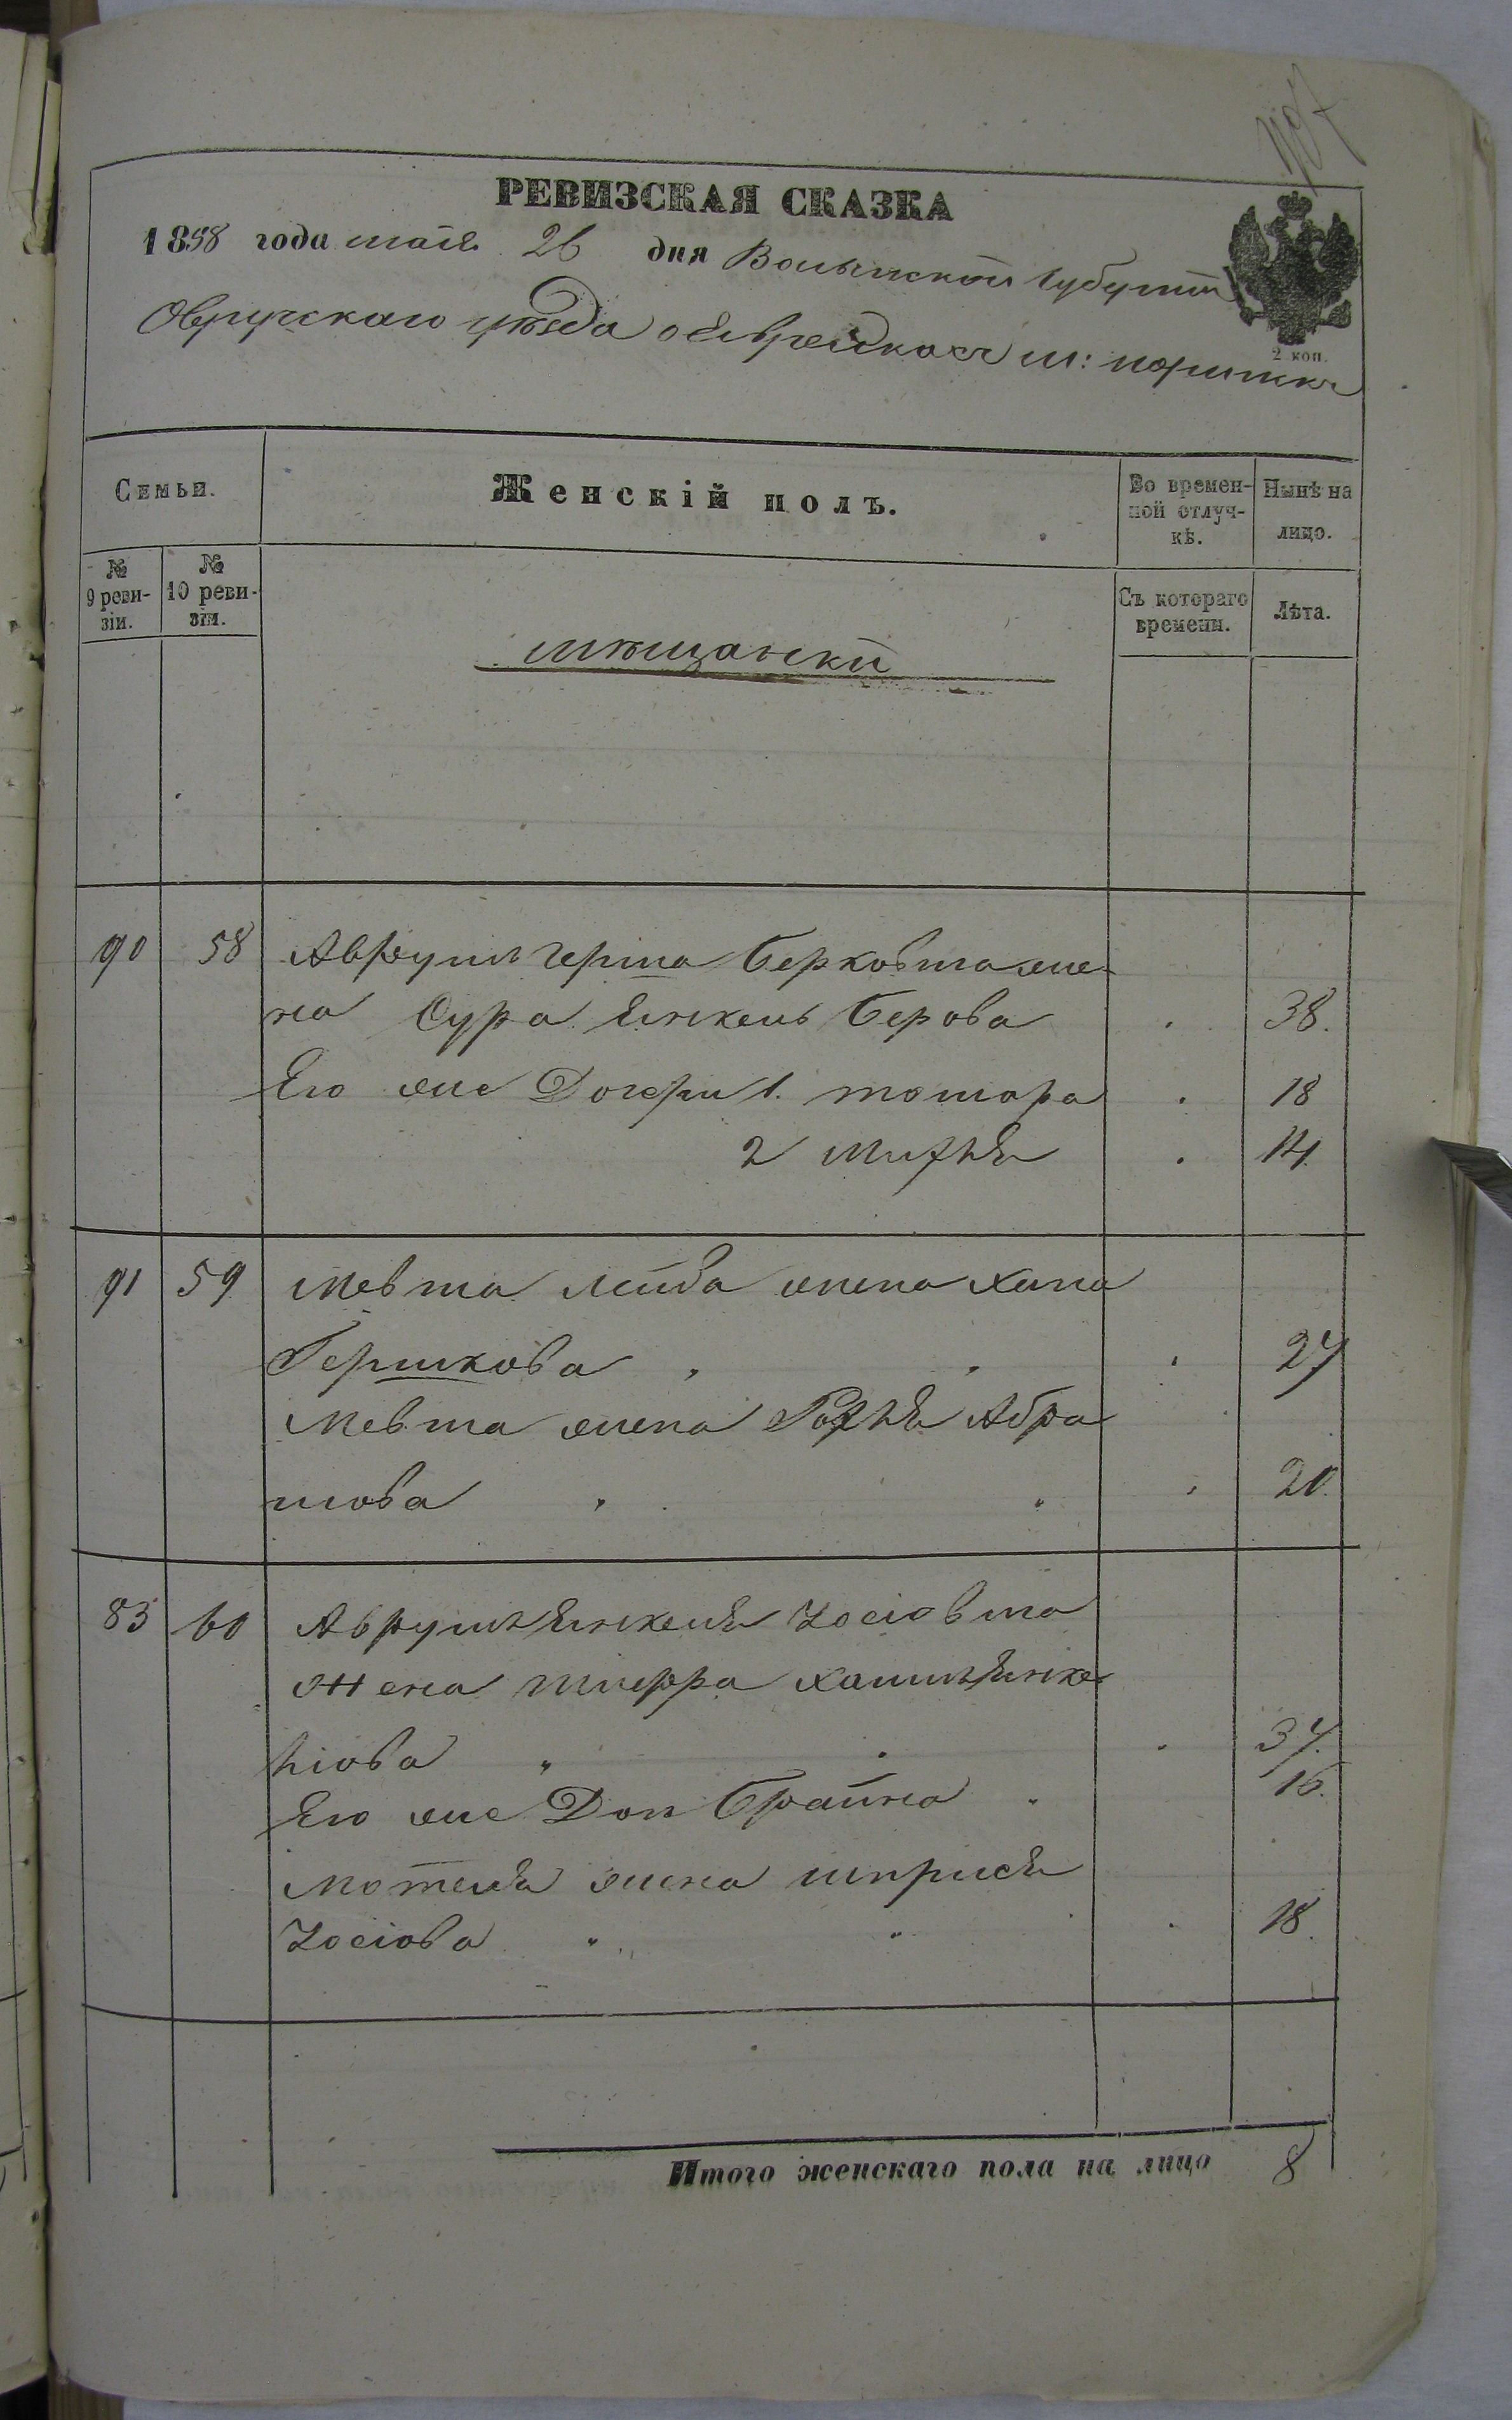 107
РЕВИЗСКАЯ СКАЗКА
1858 года мая 26 дня Волынской Губерніи
2 коп.
Овручскаго уѣзда о Еврейкахъ м:
Семьи.
Женскій полъ.
Во времен-
ной отлуч-
кѣ.
Нынѣ на
лицо.
№
9 реви-
зіи.
№
10 реви-
зіи.
Съ котораго
времени.
Лѣта.
мѣщанки
90 58 Аврумъ Герша Берковта же-
на Сура Янкель Берова 38.
Его же Дочери 1. 18
2 14.
91 59 Мевта Лейба жена Хана
Гершкова 27
Мевта жена Абра
мова 20.
83 60 Аврумъ Янкеля Іосіовта
жена Хаимъ Янке
ліова 37.
Его же Доч Брайна 16.
Мотеля жена
Іосіова 18.
Итого женскаго пола на лицо 8